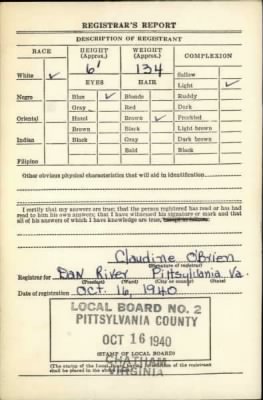 REGISTRAR'S REPORT
DESCRIPTION OF REGISTRANT
RACE HEIGHT (Approx.) WEIGHT (Approx.) COMPLEXION
6' 134
White ✓ EYES HAIR Sallow
Light ✓
Negro Blue ✓ Blonde Ruddy
Gray Red Dark
Oriental Hazel Brown ✓ Freckled
Brown Black Light brown
Indian Black Gray Dark brown
Bald Black
Filipino
Other obvious physical characteristics that will aid in identification
I certify that my answers are true; that the person registered has read or has had
read to him his own answers; that I have witnessed his signature or mark and that
all of his answers of which I have knowledge are true, except as follows:
Claudine O'Brien
(Signature of registrar)
Registrar for Dan River Pittsylvania Va.
(Precinct) (Ward) (City or county) (State)
Date of registration Oct 16, 1940
LOCAL BOARD NO. 2
PITTSYLVANIA COUNTY
OCT 16 1940
(STAMP OF LOCAL BOARD)
CHATHAM
(The stamp of the Local Board having jurisdiction of the registrant
shall be placed in the above space.)
VIRGINIA